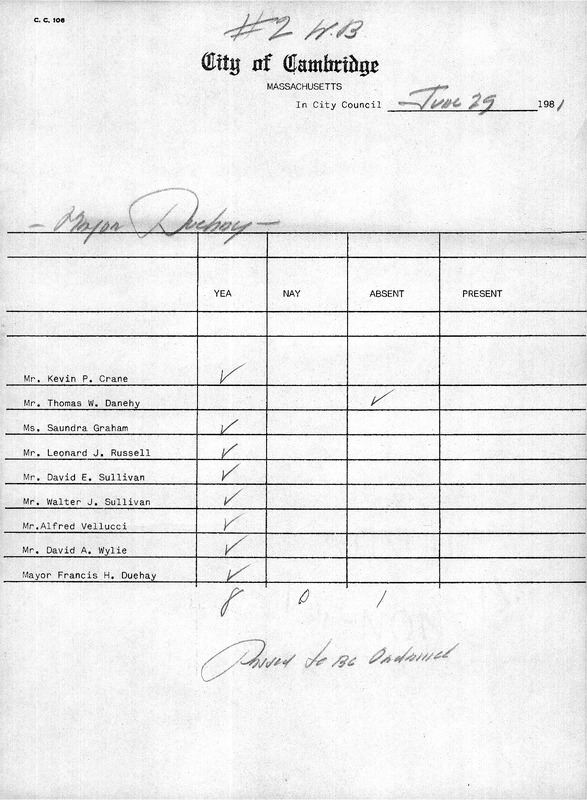 C. C. 106
#2 W.B
City of Cambridge
MASSACHUSETTS
In City Council June 29 1981
- Mayor Duehay -
YEA NAY ABSENT PRESENT
Mr. Kevin P. Crane ✓
Mr. Thomas W. Danehy ✓
Ms. Saundra Graham ✓
Mr. Leonard J. Russell ✓
Mr. David E. Sullivan ✓
Mr. Walter J. Sullivan ✓
Mr.Alfred Vellucci ✓
Mr. David A. Wylie ✓
Mayor Francis H. Duehay ✓
8 0 1
Passed to Be Ordained